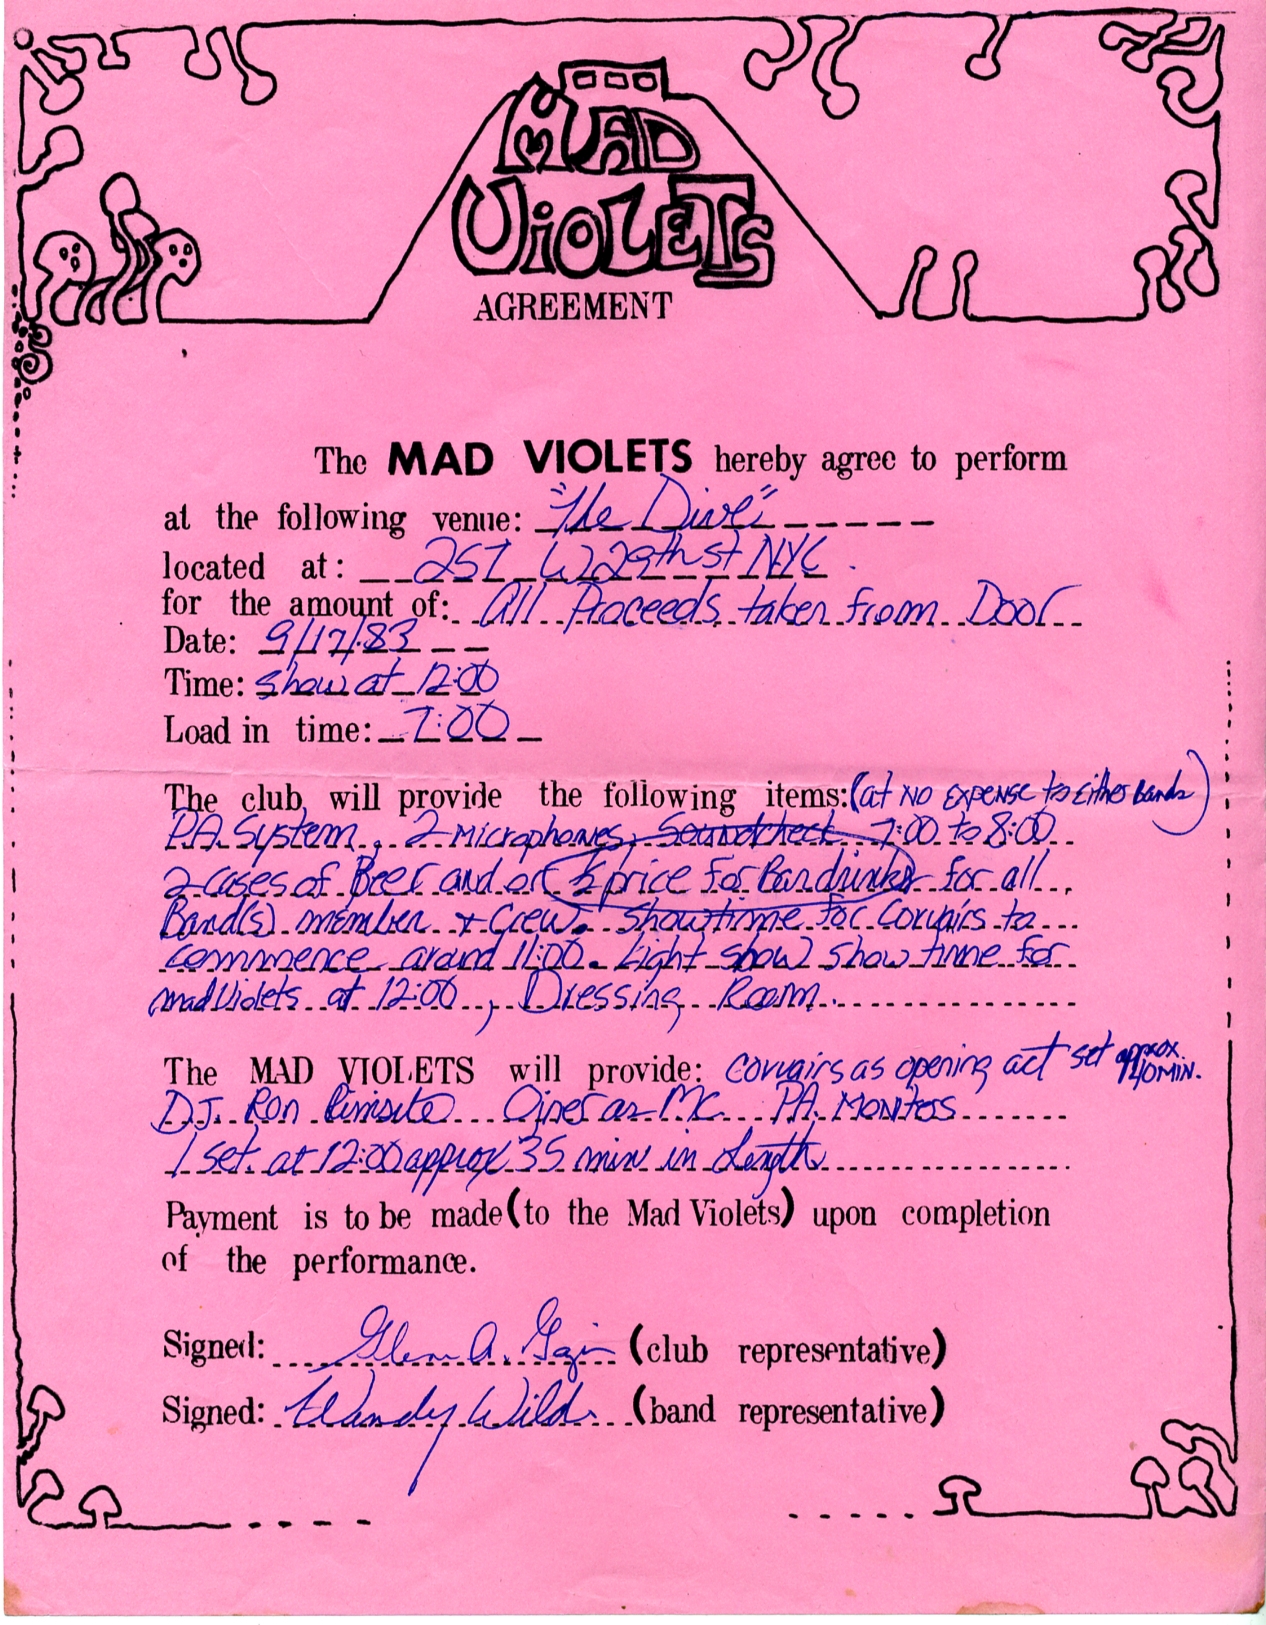 MAD
VIOLETS
AGREEMENT
The MAD VIOLETS hereby agree to perform
at the following venue: "The Dive"
located at: 257 W 29th st NYC.
for the amount of: All Proceeds taken from Door
Date: 9/17/83
Time: show at 12:00
Load in time: 7:00
The club will provide the following items: (at NO EXPENSE to Either Bands)
P.A. System, 2 Microphones, Soundcheck 7:00 to 8:00
2 cases of Beer and or ½ price for Bar drinks for all
Band(s) member + Crew. Showtime for Corvairs to
commence around 11:00. Light show show time for
mad Violets at 12:00, Dressing Room.
The MAD VIOLETS will provide: Corvairs as opening act set approx 40 MIN.
D.J. Ron as MC PA. Monitors
1 set at 12:00 approx 35 min in Length
Payment is to be made (to the Mad Violets) upon completion
of the performance.
Signed: Glenn A. (club representative)
Signed: Wendy Wild (band representative)